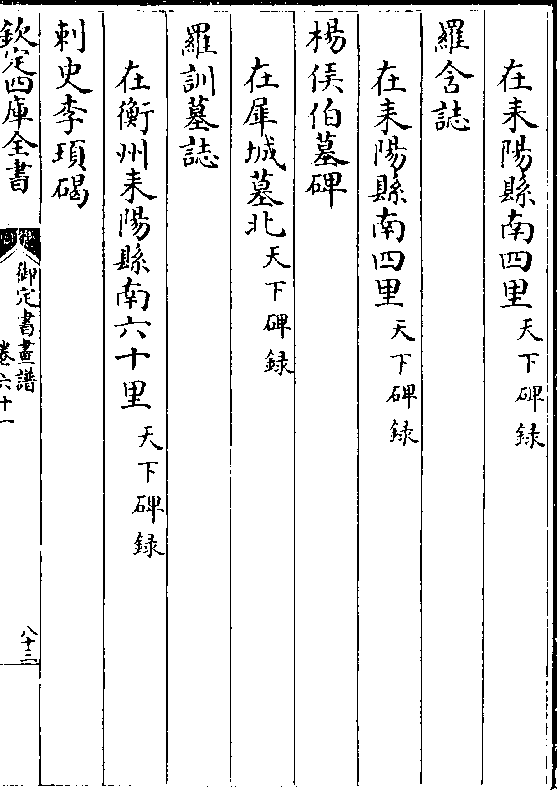 在耒陽縣南四里天下碑録
羅含誌
在耒陽縣南四里天下碑録
楊侯伯墓碑
在犀城墓北天下碑録
羅訓墓誌
在衡州耒陽縣南六十里天下碑録
刺史李頊碣
欽定四庫全書
御定書畫譜
卷六十一
八十三